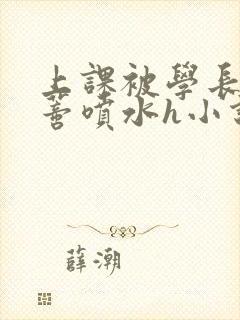 上課被學長
蕾噴水h小
薛潮